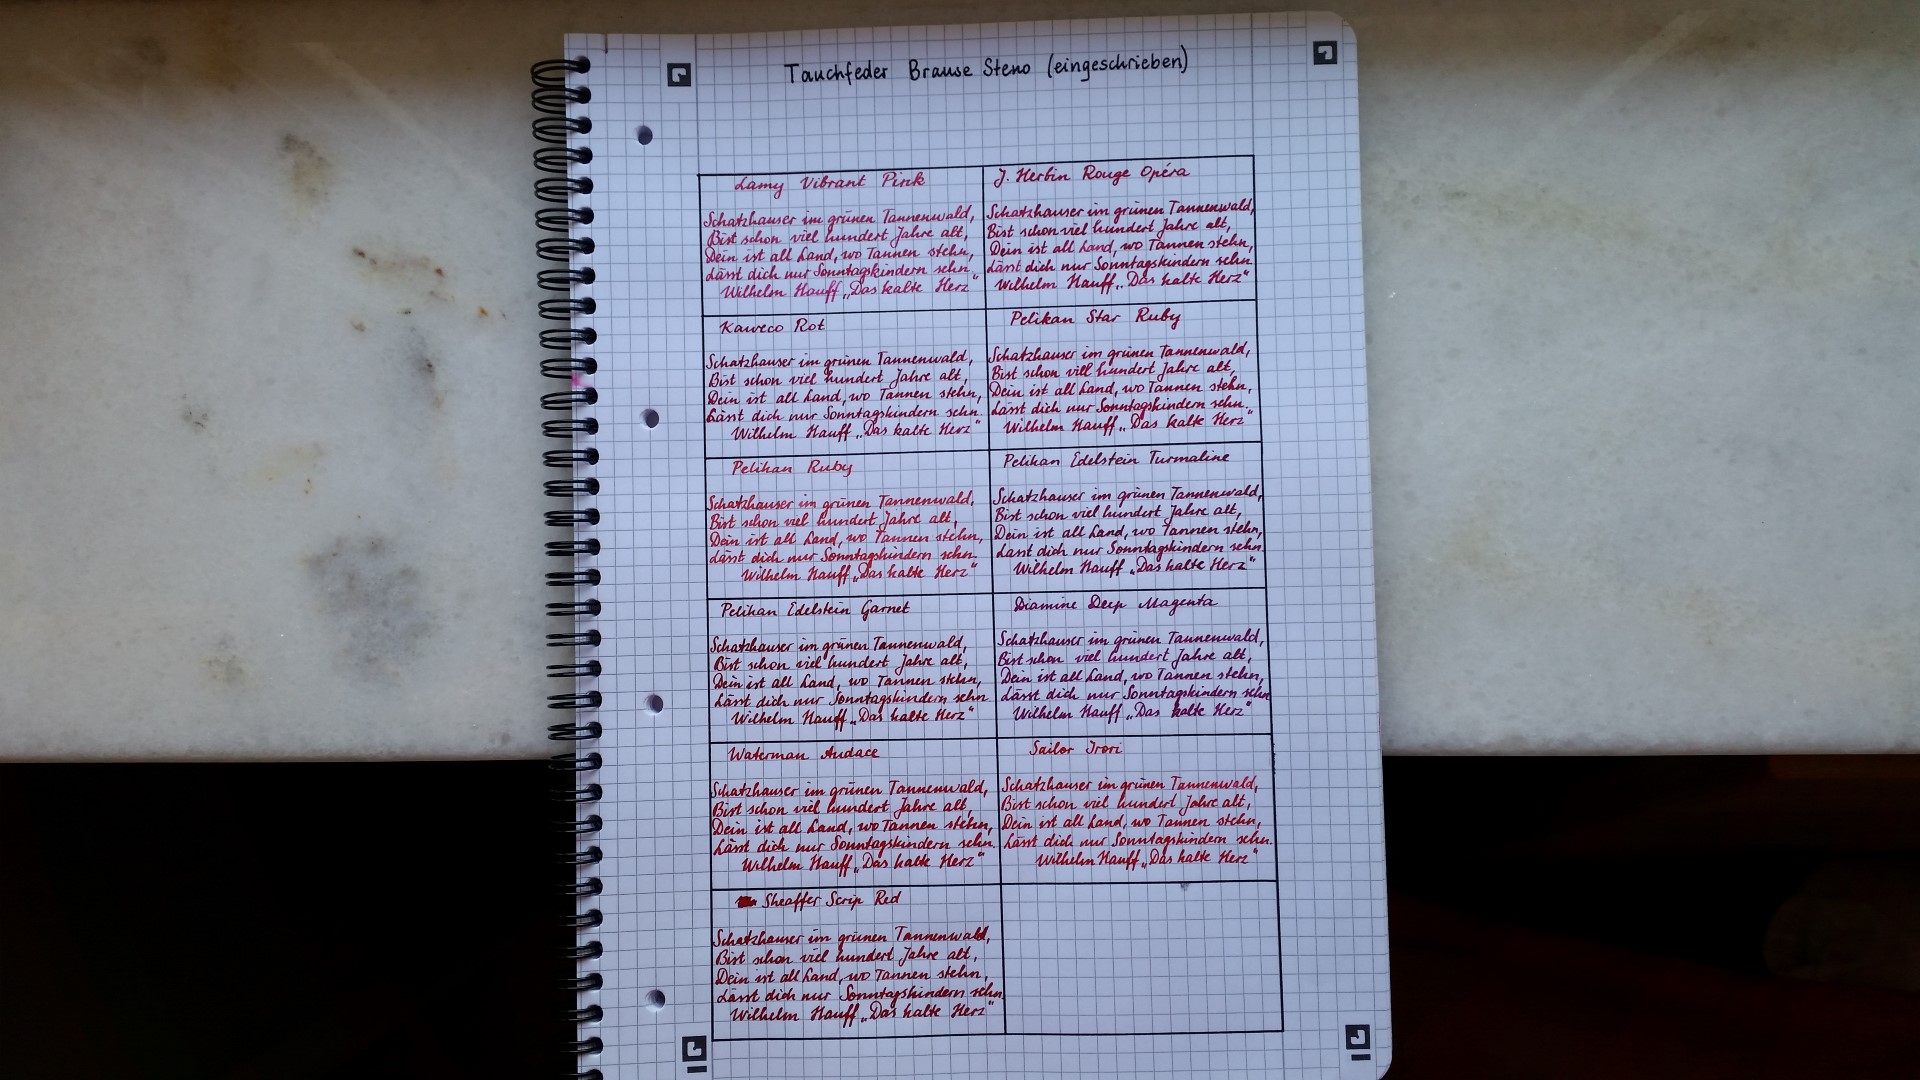 Tauchfeder Brause Steno (eingeschrieben)
Lamy Vibrant Pink
Schatzhauser im grünen Tannenwald,
Bist schon viel hundert Jahre alt,
Dein ist all Land, wo Tannen stehn,
Lässt dich nur Sonntagskindern sehn.
Wilhelm Hauff „Das kalte Herz“
J. Herbin Rouge Opéra
Schatzhauser im grünen Tannenwald,
Bist schon viel hundert Jahre alt,
Dein ist all Land, wo Tannen stehn,
Lässt dich nur Sonntagskindern sehn.
Wilhelm Hauff „Das kalte Herz“
Kaweco Rot
Schatzhauser im grünen Tannenwald,
Bist schon viel hundert Jahre alt,
Dein ist all Land, wo Tannen stehn,
Lässt dich nur Sonntagskindern sehn.
Wilhelm Hauff „Das kalte Herz“
Pelikan Star Ruby
Schatzhauser im grünen Tannenwald,
Bist schon viel hundert Jahre alt,
Dein ist all Land, wo Tannen stehn,
Lässt dich nur Sonntagskindern sehn.
Wilhelm Hauff „Das kalte Herz“
Pelikan Ruby
Schatzhauser im grünen Tannenwald,
Bist schon viel hundert Jahre alt,
Dein ist all Land, wo Tannen stehn,
Lässt dich nur Sonntagskindern sehn.
Wilhelm Hauff „Das kalte Herz“
Pelikan Edelstein Turmaline
Schatzhauser im grünen Tannenwald,
Bist schon viel hundert Jahre alt,
Dein ist all Land, wo Tannen stehn,
Lässt dich nur Sonntagskindern sehn.
Wilhelm Hauff „Das kalte Herz“
Pelikan Edelstein Garnet
Schatzhauser im grünen Tannenwald,
Bist schon viel hundert Jahre alt,
Dein ist all Land, wo Tannen stehn,
Lässt dich nur Sonntagskindern sehn.
Wilhelm Hauff „Das kalte Herz“
Diamine Deep Magenta
Schatzhauser im grünen Tannenwald,
Bist schon viel hundert Jahre alt,
Dein ist all Land, wo Tannen stehn,
Lässt dich nur Sonntagskindern sehn
Wilhelm Hauff „Das kalte Herz“
Waterman Audace
Schatzhauser im grünen Tannenwald,
Bist schon viel hundert Jahre alt,
Dein ist all Land, wo Tannen stehn,
Lässt dich nur Sonntagskindern sehn.
Wilhelm Hauff „Das kalte Herz“
Sailor Irori
Schatzhauser im grünen Tannenwald,
Bist schon viel hundert Jahre alt,
Dein ist all Land, wo Tannen stehn,
Lässt dich nur Sonntagskindern sehn.
Wilhelm Hauff „Das kalte Herz“
Sheaffer Scrip Red
Schatzhauser im grünen Tannenwald,
Bist schon viel hundert Jahre alt,
Dein ist all Land, wo Tannen stehn,
Lässt dich nur Sonntagskindern sehn.
Wilhelm Hauff „Das kalte Herz“